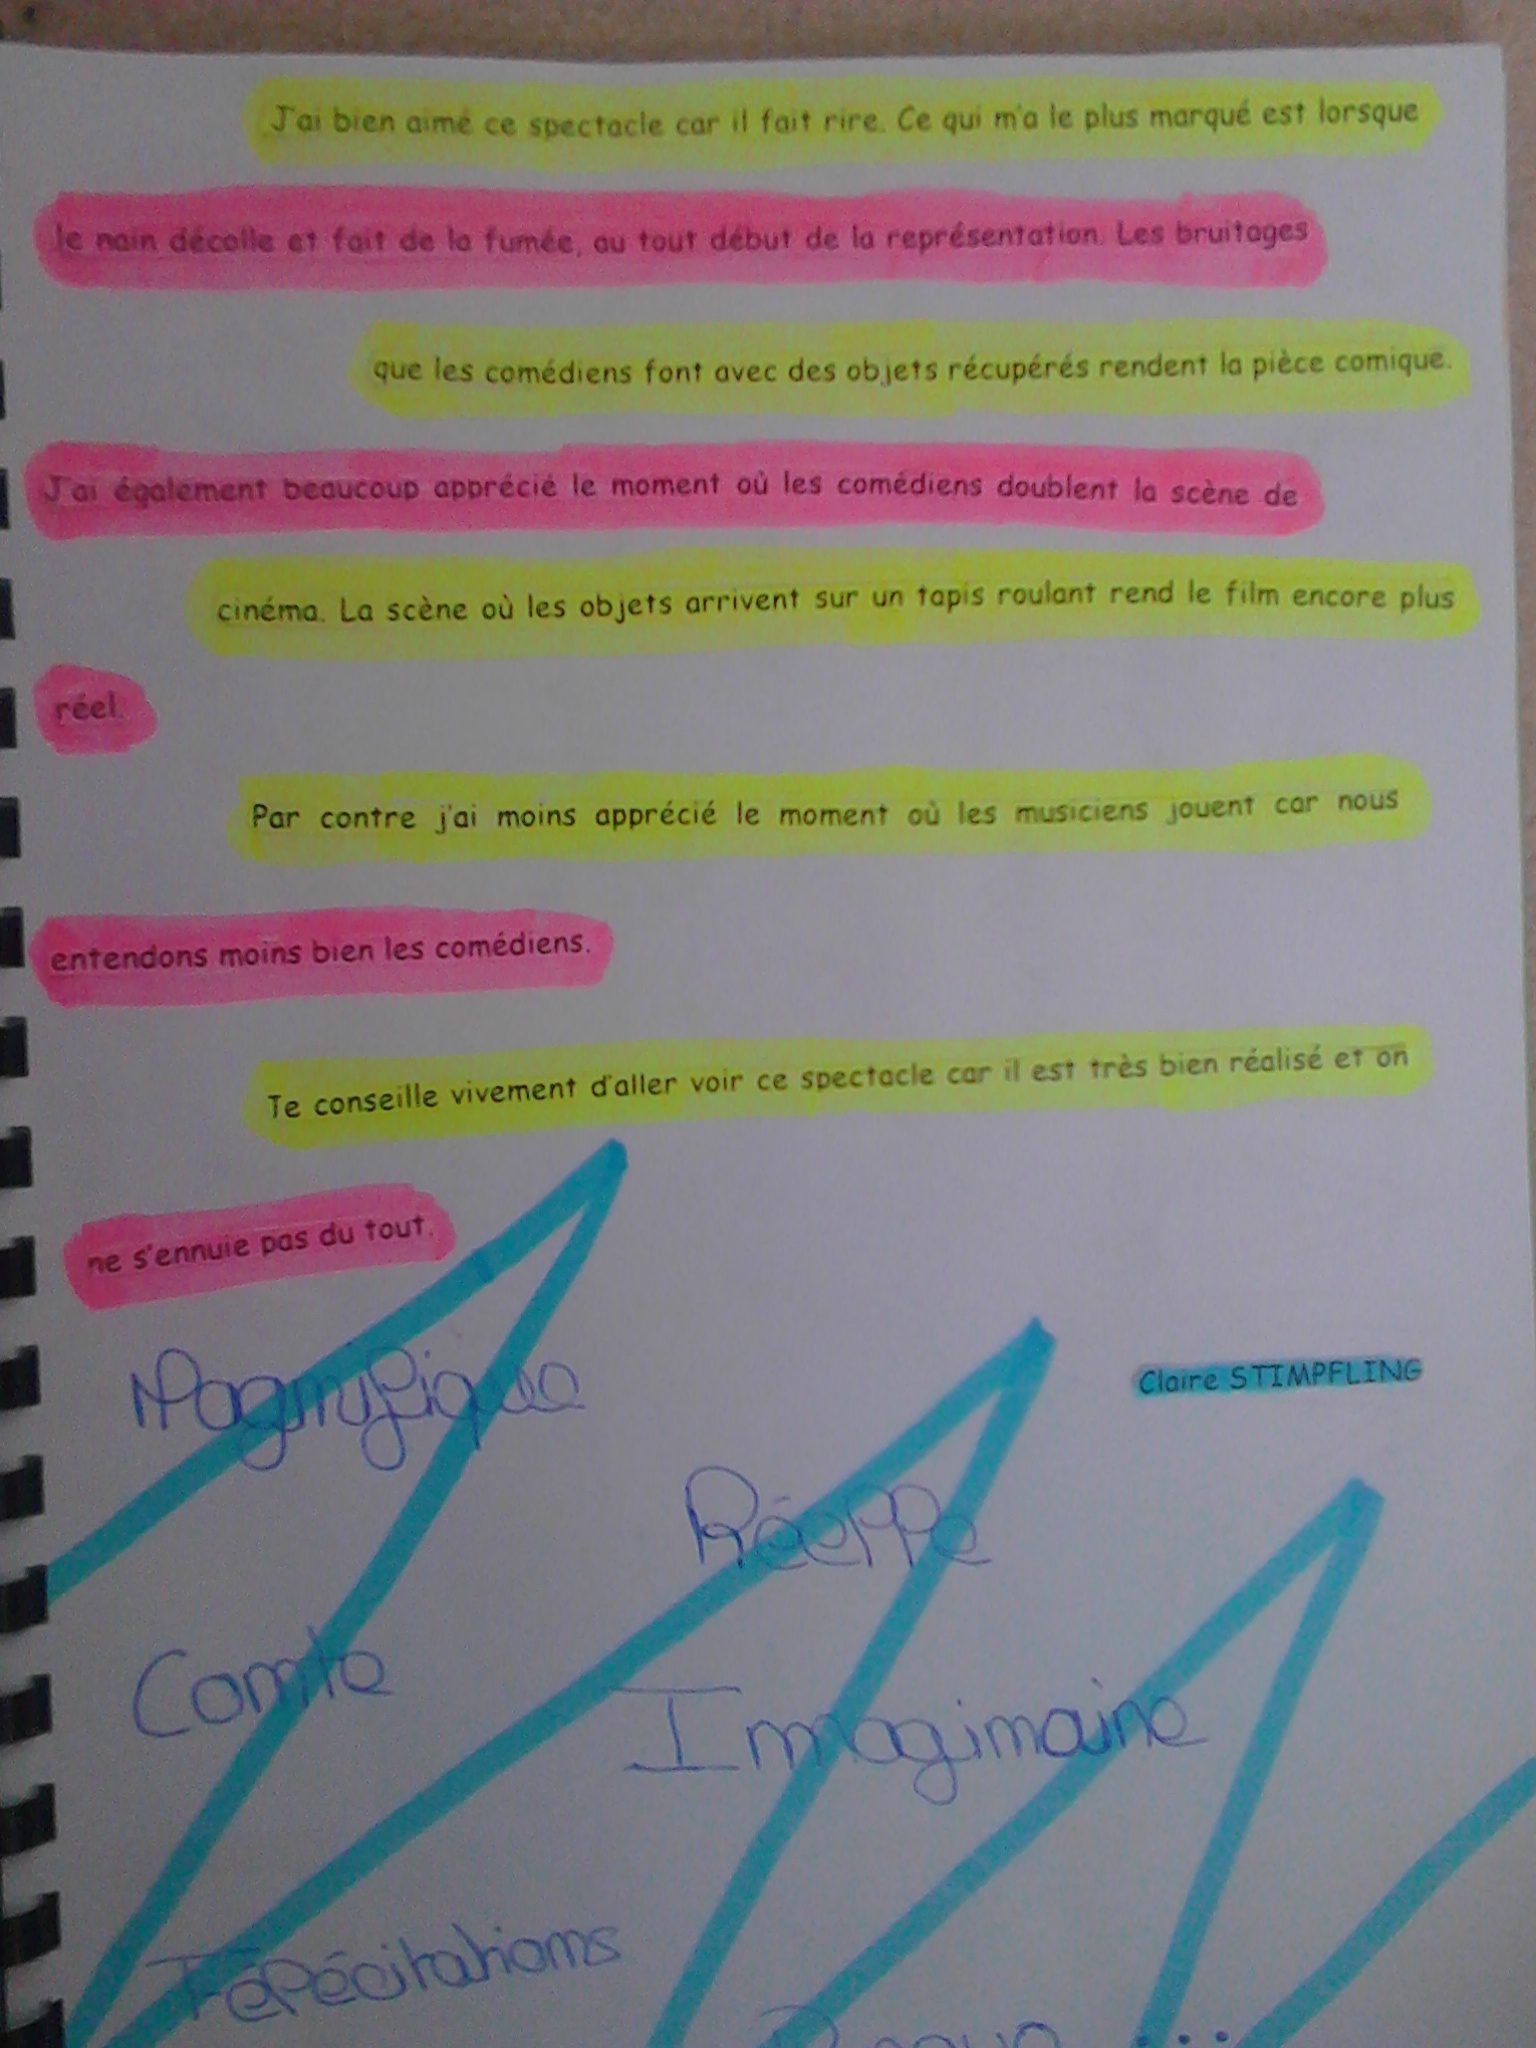 J'ai bien aimé ce spectacle car il fait rire. Ce qui m'a le plus marqué est lorsque
le nain décolle et fait de la fumée, au tout début de la représentation. Les bruitages
que les comédiens font avec des objets récupérés rendent la pièce comique.
J'ai également beaucoup apprécié le moment où les comédiens doublent la scène de
cinéma. La scène où les objets arrivent sur un tapis roulant rend le film encore plus
réel.
Par contre j'ai moins apprécié le moment où les musiciens jouent car nous
entendons moins bien les comédiens.
Te conseille vivement d'aller voir ce spectacle car il est très bien réalisé et on
ne s'ennuie pas du tout.
Claire STIMPFLING
Magnifique
Réelle
Comte
Immaginaire
Félécitations